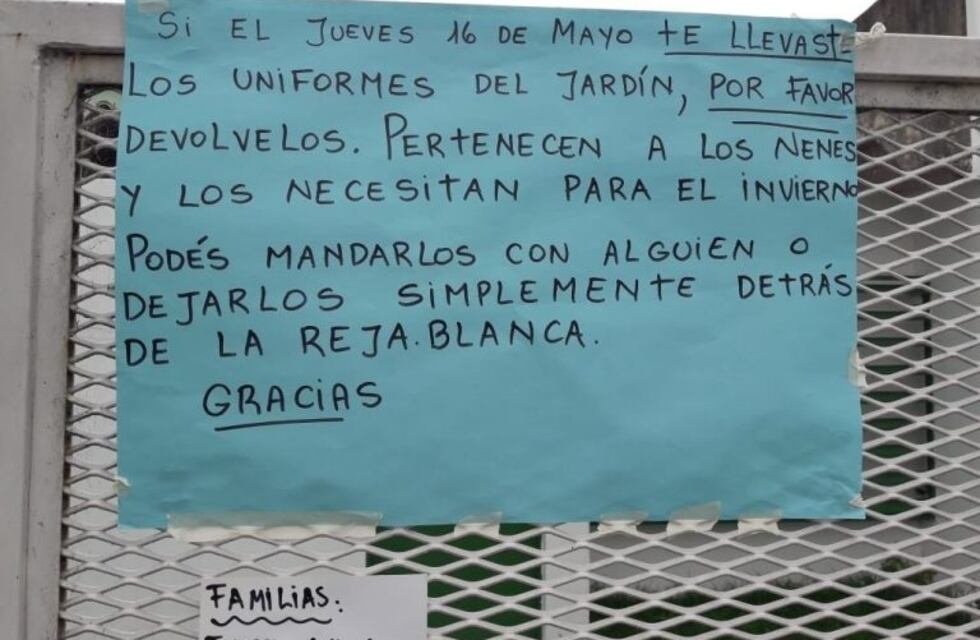 Si EL JUEVES 16 DE MAYO tE LLEVASTE
LOS UNiFORMES DEL JARDÍN, POR FAVOR
DEVOLVELOS. PERtENECEN A LOS NENES
Y LOS NECESitAN PARA EL iNVIERNO
PODÉS MANDARLOS CON ALGUIEN O
DEJARLOS SiMPLEMENtE DEtRÁS
DE LA REJA.BLANCA.
GRACiAS
FAMiLiAS: